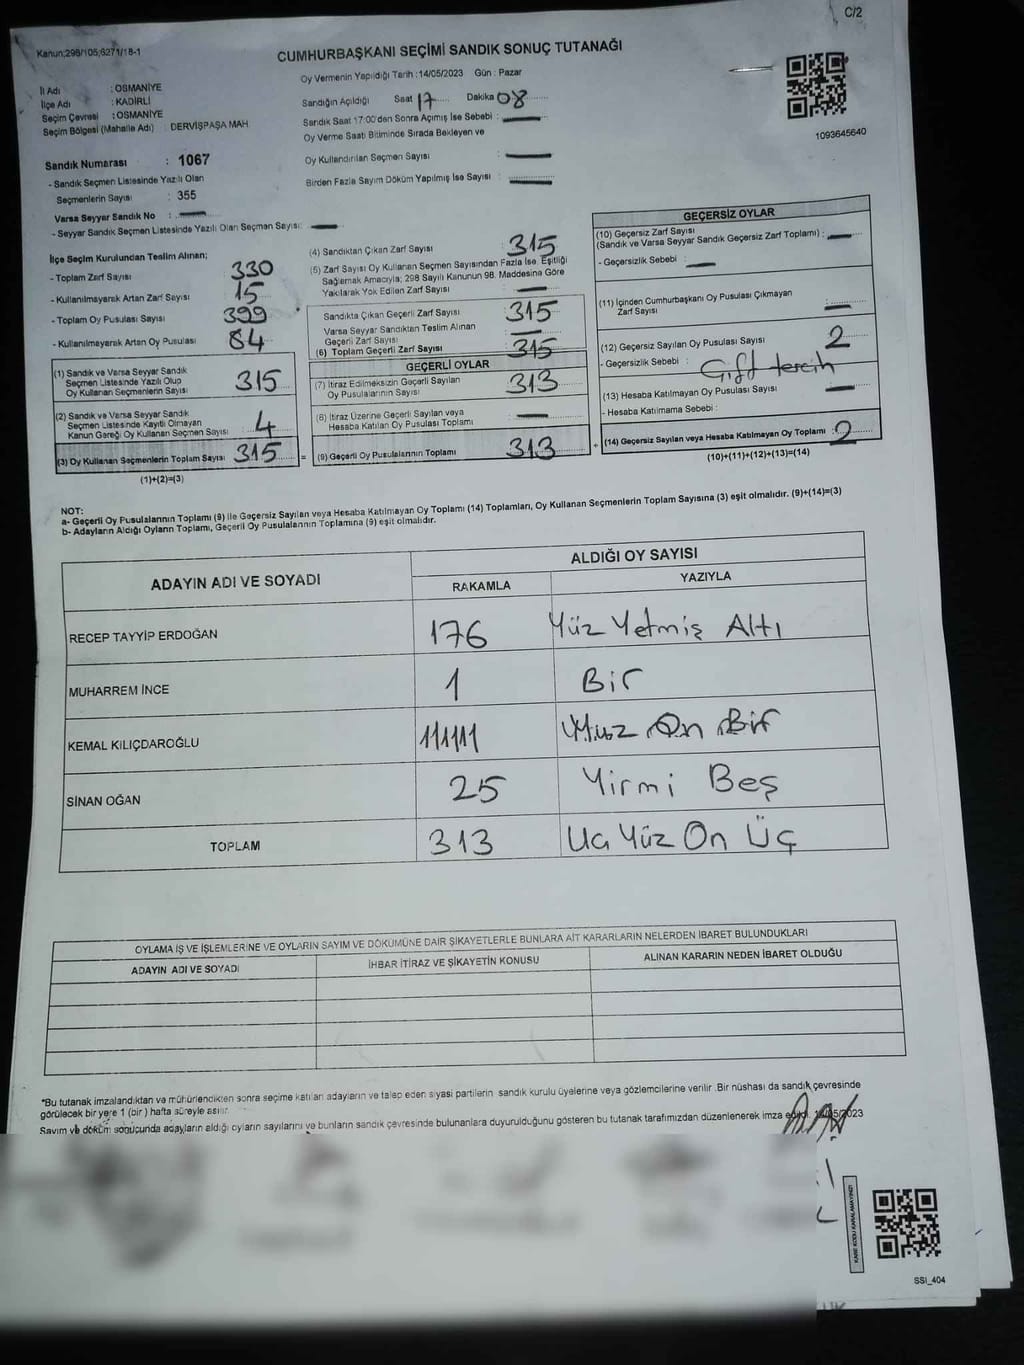 C/2
Kanun;298/105;6271/18-1
CUMHURBAŞKANI SEÇİMİ SANDIK SONUÇ TUTANAĞI
Oy Vermenin Yapıldığı Tarih :14/05/2023 Gün : Pazar
İl Adı : OSMANİYE
İlçe Adı : KADİRLİ
Seçim Çevresi : OSMANİYE
Seçim Bölgesi (Mahalle Adı) : DERVİŞPAŞA MAH
Sandığın Açıldığı Saat 17 Dakika 08
Sandık Saat 17:00'den Sonra Açımış İse Sebebi :
Oy Verme Saati Bitiminde Sırada Bekleyen ve
Oy Kullandırılan Seçmen Sayısı :
Birden Fazla Sayım Döküm Yapılmış İse Sayısı :
1093645640
Sandık Numarası : 1067
- Sandık Seçmen Listesinde Yazılı Olan
Seçmenlerin Sayısı : 355
Varsa Seyyar Sandık No :
- Seyyar Sandık Seçmen Listesinde Yazılı Olan Seçmen Sayısı:
İlçe Seçim Kurulundan Teslim Alınan;
- Toplam Zarf Sayısı 330
- Kullanılmayarak Artan Zarf Sayısı 15
- Toplam Oy Pusulası Sayısı 399
- Kullanılmayarak Artan Oy Pusulası 84
(1) Sandık ve Varsa Seyyar Sandık
Seçmen Listesinde Yazılı Olup
Oy Kullanan Seçmenlerin Sayısı 315
(2) Sandık ve Varsa Seyyar Sandık
Seçmen Listesinde Kayıtlı Olmayan
Kanun Gereği Oy Kullanan Seçmen Sayısı 4
(3) Oy Kullanan Seçmenlerin Toplam Sayısı 315 =
(1)+(2)=(3)
(4) Sandıktan Çıkan Zarf Sayısı 315
(5) Zarf Sayısı Oy Kullanan Seçmen Sayısından Fazla İse, Eşitliği
Sağlamak Amacıyla; 298 Sayılı Kanunun 98. Maddesine Göre
Yakılarak Yok Edilen Zarf Sayısı
Sandıkta Çıkan Geçerli Zarf Sayısı 315
Varsa Seyyar Sandıktan Teslim Alınan
Geçerli Zarf Sayısı
(6) Toplam Geçerli Zarf Sayısı 315
GEÇERLİ OYLAR
(7) İtiraz Edilmeksizin Geçerli Sayılan
Oy Pusulalarının Sayısı 313
(8) İtiraz Üzerine Geçerli Sayılan veya
Hesaba Katılan Oy Pusulası Toplamı
(9) Geçerli Oy Pusulalarının Toplamı 313 +
GEÇERSİZ OYLAR
(10) Geçersiz Zarf Sayısı
(Sandık ve Varsa Seyyar Sandık Geçersiz Zarf Toplamı) :
- Geçersizlik Sebebi :
(11) İçinden Cumhurbaşkanı Oy Pusulası Çıkmayan
Zarf Sayısı :
(12) Geçersiz Sayılan Oy Pusulası Sayısı 2
- Geçersizlik Sebebi : Çift tercih
(13) Hesaba Katılmayan Oy Pusulası Sayısı
- Hesaba Katılmama Sebebi :
(14) Geçersiz Sayılan veya Hesaba Katılmayan Oy Toplamı : 2
(10)+(11)+(12)+(13)=(14)
NOT:
a- Geçerli Oy Pusulalarının Toplamı (9) ile Geçersiz Sayılan veya Hesaba Katılmayan Oy Toplamı (14) Toplamları, Oy Kullanan Seçmenlerin Toplam Sayısına (3) eşit olmalıdır. (9)+(14)=(3)
b- Adayların Aldığı Oyların Toplamı, Geçerli Oy Pusulalarının Toplamına (9) eşit olmalıdır.
ADAYIN ADI VE SOYADI ALDIĞI OY SAYISI
RAKAMLA YAZIYLA
RECEP TAYYİP ERDOĞAN 176 Yüz Yetmiş Altı
MUHARREM İNCE 1 Bir
KEMAL KILIÇDAROĞLU 111111 Yüz On Bir
SİNAN OĞAN 25 Yirmi Beş
TOPLAM 313 Üç Yüz On Üç
OYLAMA İŞ VE İŞLEMLERİNE VE OYLARIN SAYIM VE DÖKÜMÜNE DAİR ŞİKAYETLERLE BUNLARA AİT KARARLARIN NELERDEN İBARET BULUNDUKLARI
ADAYIN ADI VE SOYADI İHBAR İTİRAZ VE ŞİKAYETİN KONUSU ALINAN KARARIN NEDEN İBARET OLDUĞU
*Bu tutanak imzalandıktan ve mühürlendikten sonra seçime katılan adayların ve talep eden siyasi partilerin sandık kurulu üyelerine veya gözlemcilerine verilir .Bir nüshası da sandık çevresinde
görülecek bir yere 1 (bir ) hafta süreyle asılır.
Sayım ve döküm sonucunda adayların aldığı oyların sayılarını ve bunların sandık çevresinde bulunanlara duyurulduğunu gösteren bu tutanak tarafımızdan düzenlenerek imza edildi. 14/05/2023
KARE KODU KARALAMAYINIZ!
SSI_404